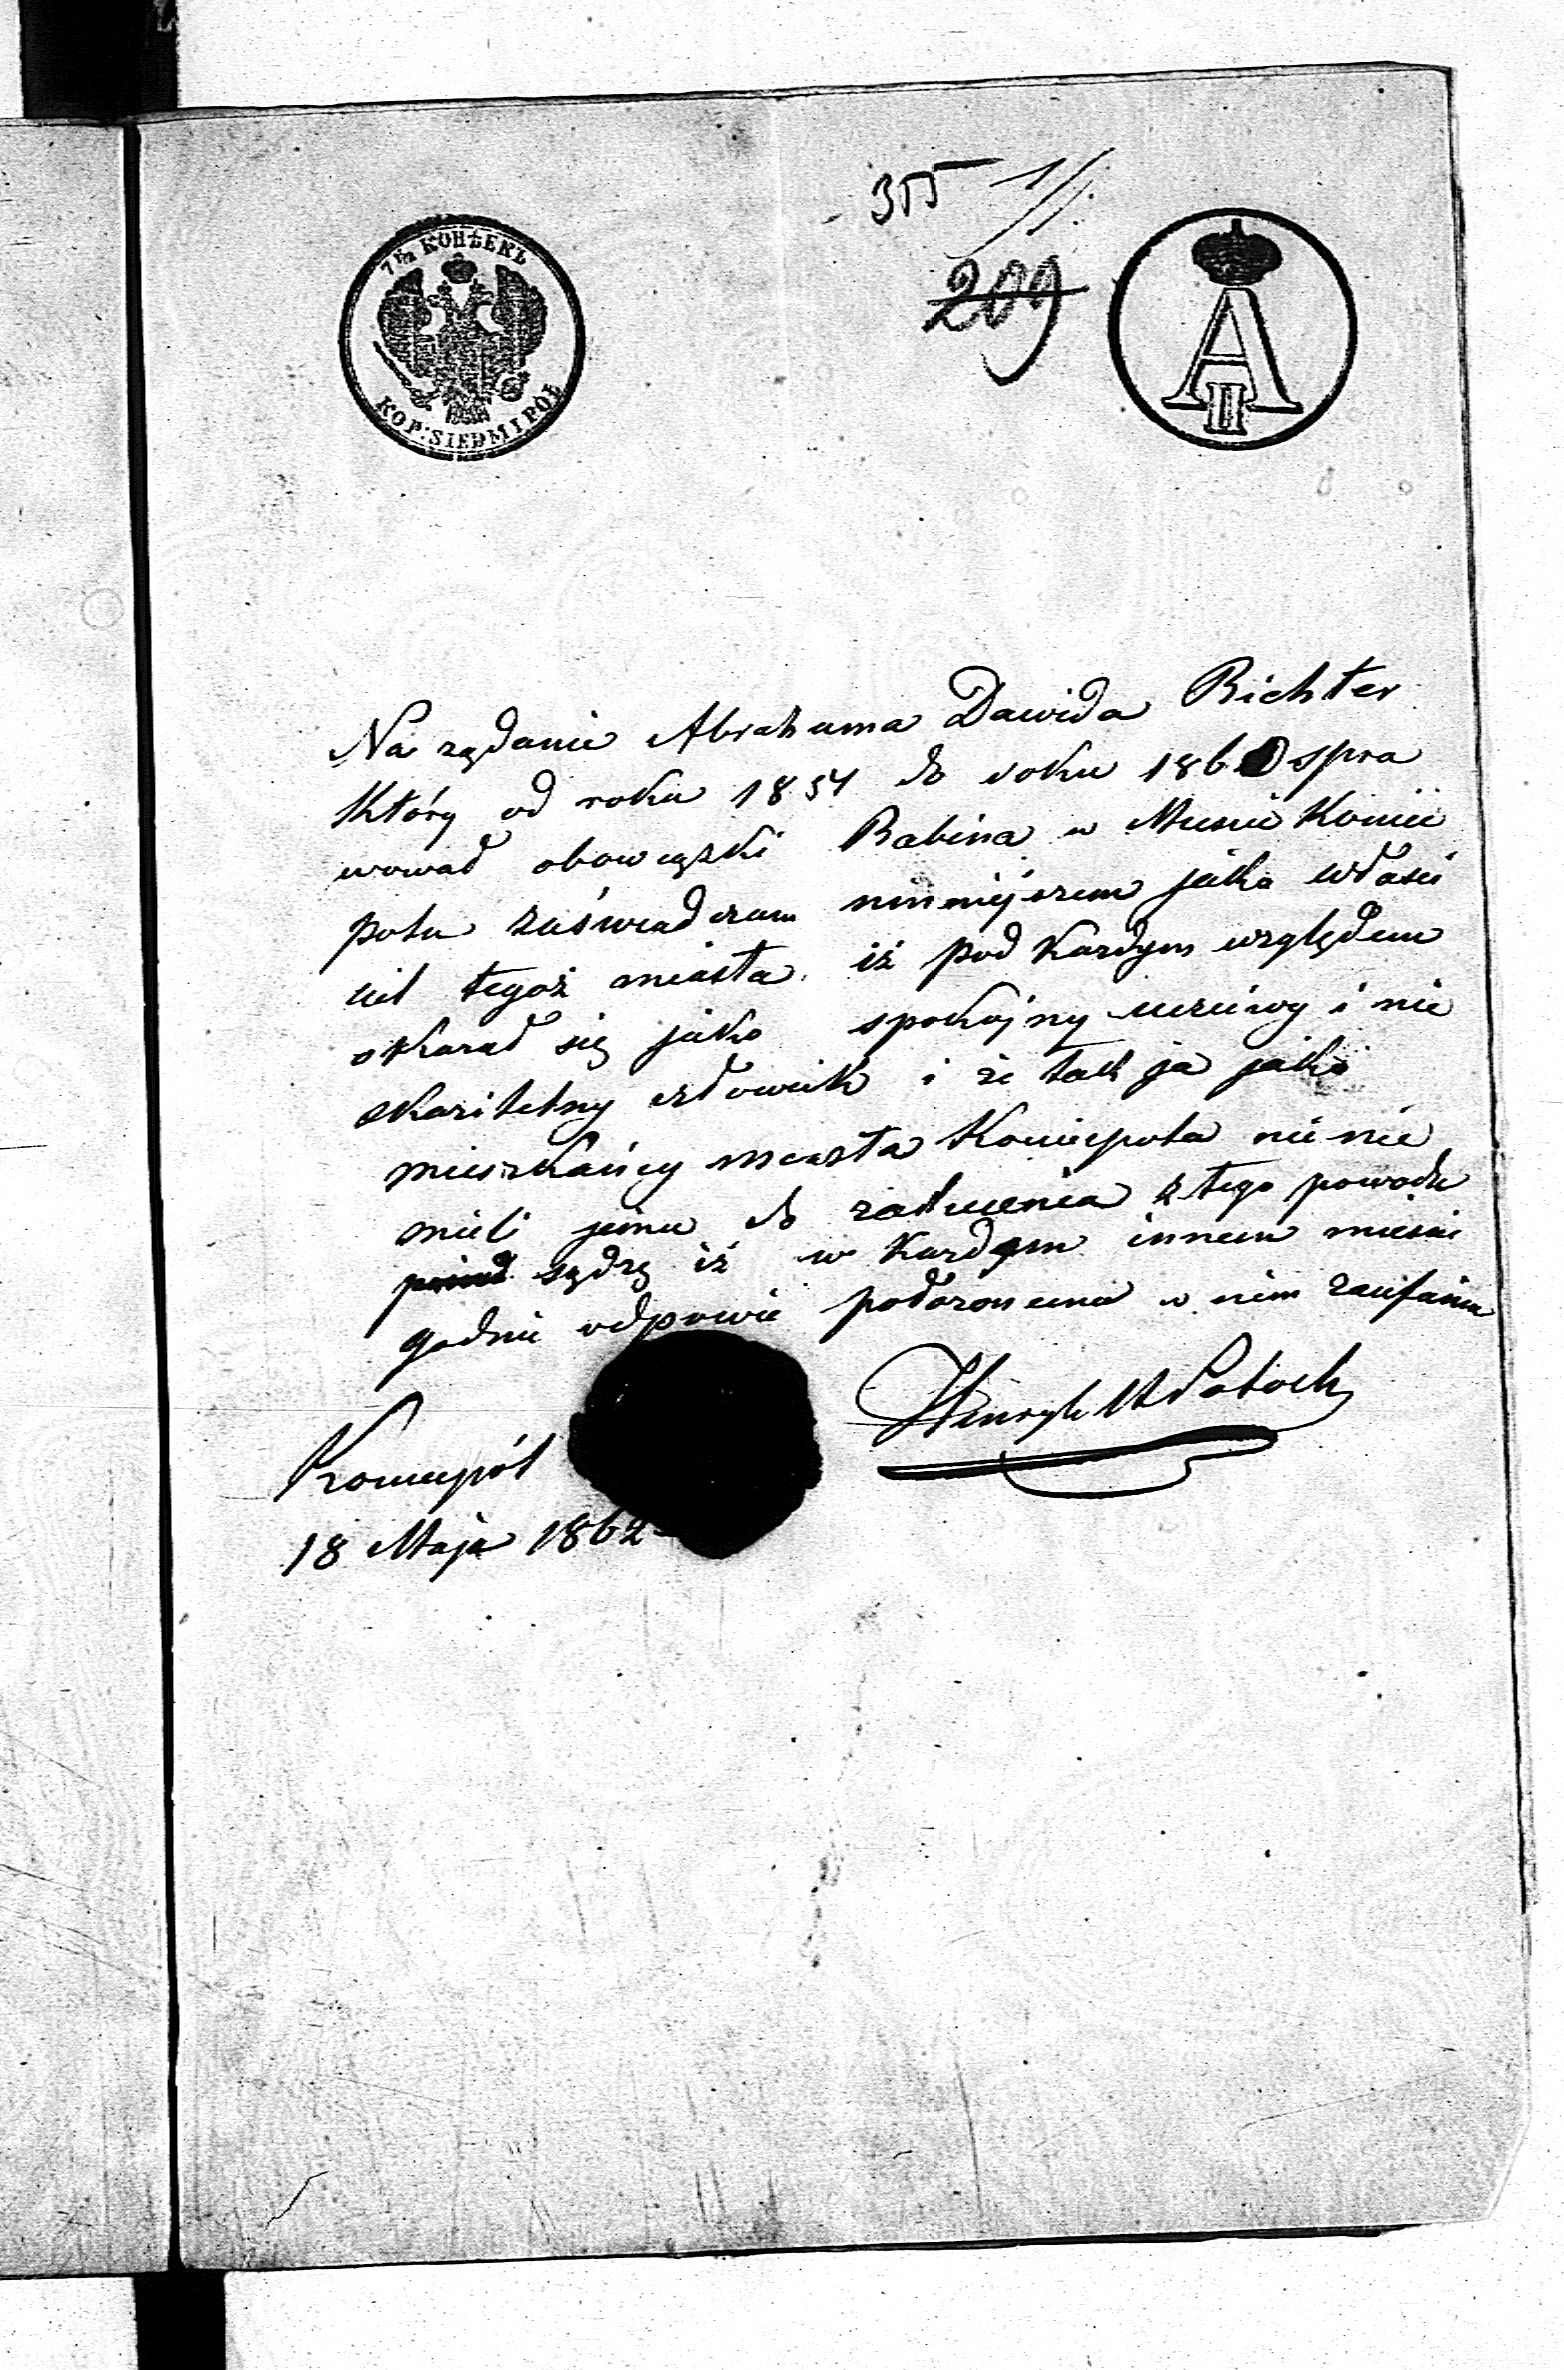 355 1/1
209
7 1/2 КОПѢЕКЪ
KOP: SIEDM I PÓŁ
A II
Na rządanie Abrahama Dawida Richter
który od roku 1854 do roku 1860 spra
wował obowiązki Rabina w Mieście Koniec
polu zaświadczam niniejszem jako właści
ciel tegoż miasta iż pod każdym względem
okazał się jako spokojny uczciwy i nie
skazitelny człowiek i że tak ja jako
mieszkańcy miasta Koniecpola nic nie
mieli jemu do zarzucenia z tego powodu
sądzę iż w każdem innem mieście
godnie odpowie położonemu w nim zaufaniu
Henryk Potocki
Koniecpól
18 Maja 1862